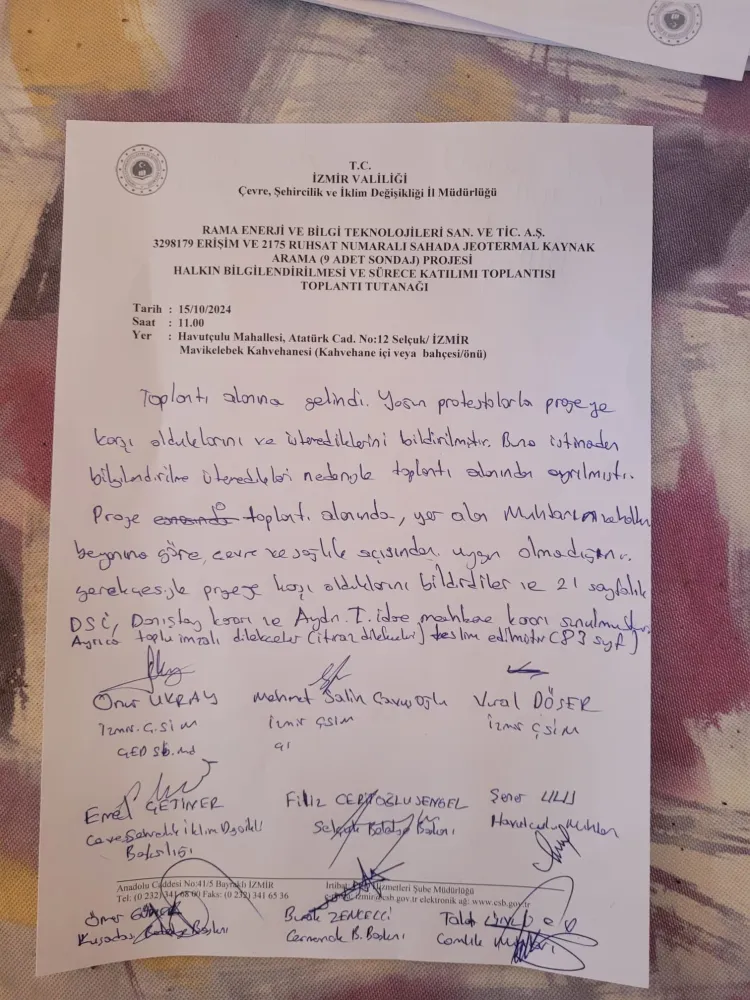 T.C.
İZMİR VALİLİĞİ
Çevre, Şehircilik ve İklim Değişikliği İl Müdürlüğü
RAMA ENERJİ VE BİLGİ TEKNOLOJİLERİ SAN. VE TİC. A.Ş.
3298179 ERİŞİM VE 2175 RUHSAT NUMARALI SAHADA JEOTERMAL KAYNAK
ARAMA (9 ADET SONDAJ) PROJESİ
HALKIN BİLGİLENDİRİLMESİ VE SÜRECE KATILIMI TOPLANTISI
TOPLANTI TUTANAĞI
Tarih : 15/10/2024
Saat : 11.00
Yer : Havutçulu Mahallesi, Atatürk Cad. No:12 Selçuk/ İZMİR
Mavikelebek Kahvehanesi (Kahvehane içi veya bahçesi/önü)
Toplantı alanına gelindi. Yoğun protestolarla projeye
karşı olduklarını ve istemediklerini bildirilmiştir. Buna istinaden
bilgilendirilme istemedikleri nedeniyle toplantı alanından ayrılmıştır.
Proje toplantı alanında, yer alan Muhtarın
beyanına göre, çevre ve sağlık açısından uygun olmadığını
gerekçesiyle projeye karşı olduklarını bildirdiler ve 21 sayfalık
DSİ, Danıştay kararı ve Aydın 1. idare mahkeme kararı sunulmuştur.
Ayrıca toplu imzalı dilekçeler (itiraz dilekçeleri) teslim edilmiştir (83 syf)
Onur UKRAY Mehmet Salih Çavuşoğlu Vural DÖŞER
İzmir Ç.Ş.İ.M İzmir ÇŞİM İzmir ÇŞİM
ÇED Şb. Md
Emel ÇETİNER Filiz CERİTOĞLU SENGEL Şener
Çevre Şehircilik İklim Değişikliği Selçuk Belediye Başkanı Havutçulu Muhtarı
Bakanlığı
Anadolu Caddesi No:41/5 Bayraklı İZMİR Hizmetleri Şube Müdürlüğü
Tel: (0 232) 341 68 00 Faks: (0 232) 341 65 36 izmir@csb.gov.tr elektronik ağ: www.csb.gov.tr
Ömer Burak ZENCELCİ Talat
Kuşadası Belediye Başkanı Germencik B. Başkanı Çamlık